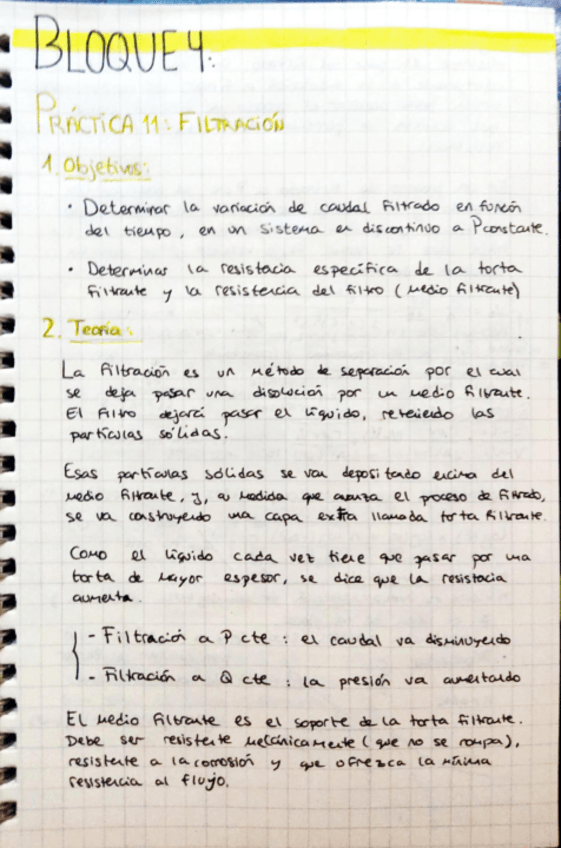 BLOQUE 4:
PRÁCTICA 11: FILTRACIÓN
1. Objetivos:
· Determinar la variación de caudal filtrado en función
del tiempo, en un sistema en discontinuo a P constante.
· Determinar la resistencia específica de la torta
filtrante y la resistencia del filtro (medio filtrante)
2. Teoría:
La filtración es un método de separación por el cual
se deja pasar una disolución por un medio filtrante.
El filtro dejará pasar el líquido, reteniendo las
partículas sólidas.
Esas partículas sólidas se van depositando encima del
medio filtrante, y, a medida que avanza el proceso de filtrado,
se va construyendo una capa extra llamada torta filtrante.
Como el líquido cada vez tiene que pasar por una
torta de mayor espesor, se dice que la resistencia
aumenta.
- Filtración a P cte : el caudal va disminuyendo
- Filtración a Q cte : la presión va aumentando
El medio filtrante es el soporte de la torta filtrante.
Debe ser resistente mecánicamente (que no se rompa),
resistente a la corrosión y que ofrezca la mínima
resistencia al flujo.